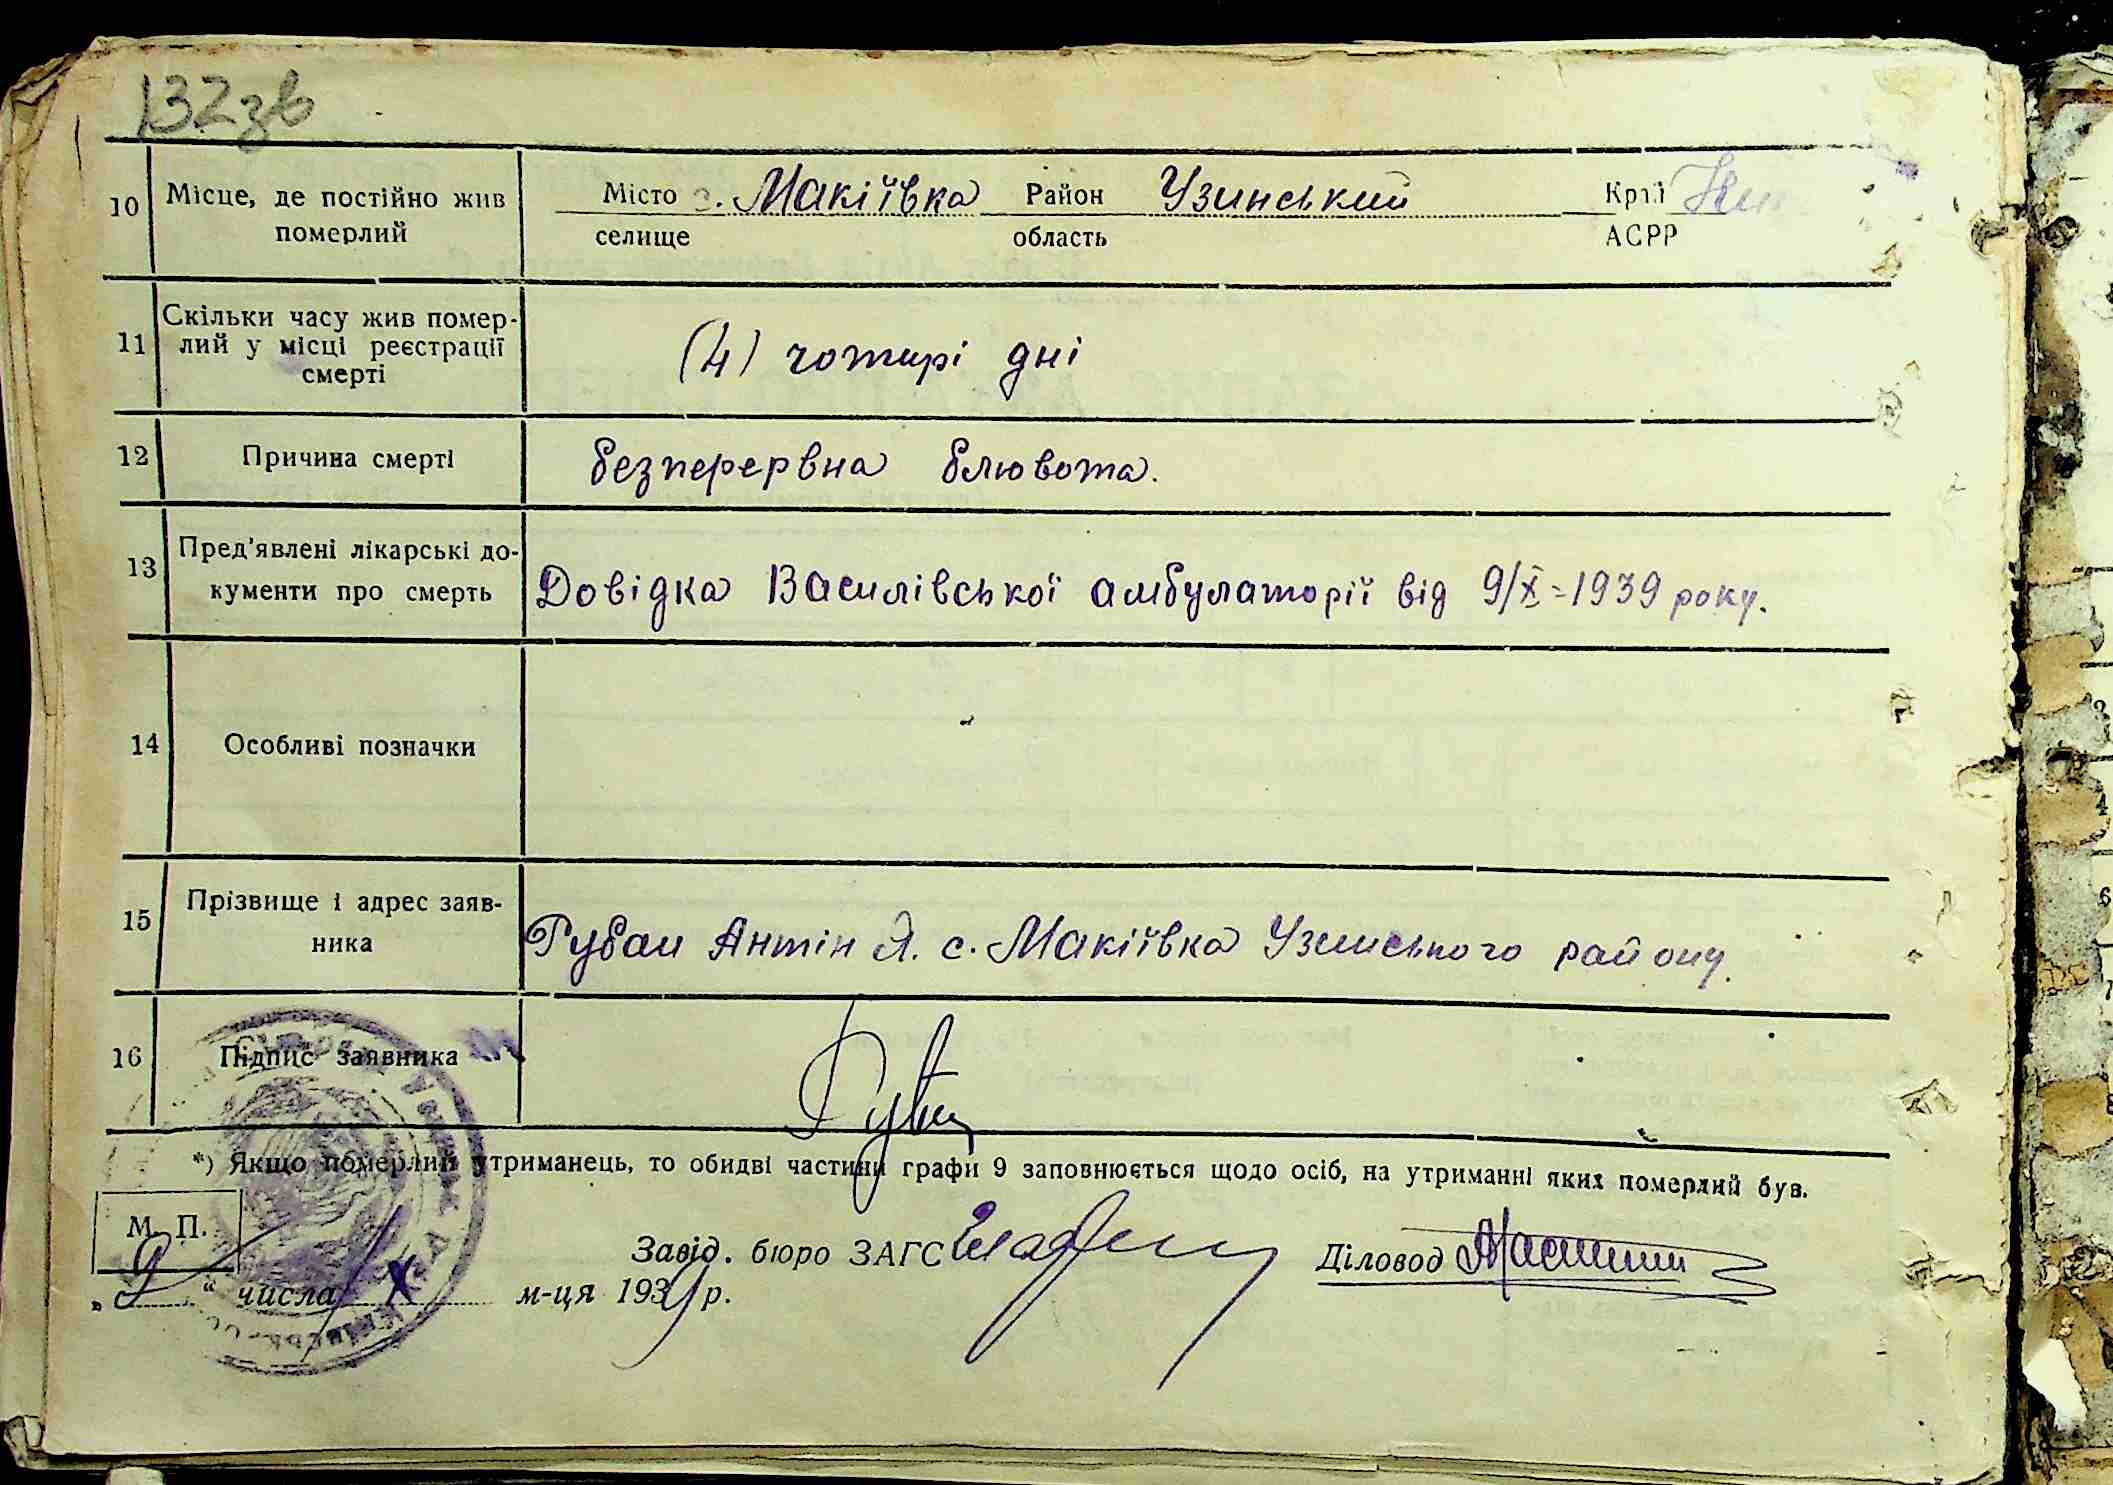 132 зв
10 Місце, де постійно жив померлий
Місто с. Макіївка Район Узинський Край
селище область АСРР
11 Скільки часу жив помер-
лий у місці реєстрації
смерті
(4) чотирі дні
12 Причина смерті безперервна блювота.
13 Пред'явлені лікарські до-
кументи про смерть
Довідка Василівської амбулаторії від 9/X-1939 року.
14 Особливі позначки
15 Прізвище і адрес заяв-
ника
Рубан Антін Я. с. Макіївка Узинського району.
16 Підпис заявника
*) Якщо померлий утриманець, то обидві частини графи 9 заповнюється щодо осіб, на утриманні яких померлий був.
М. П.
Завід. бюро ЗАГС Діловод
„ 9 “ числа X м-ця 1939 р.